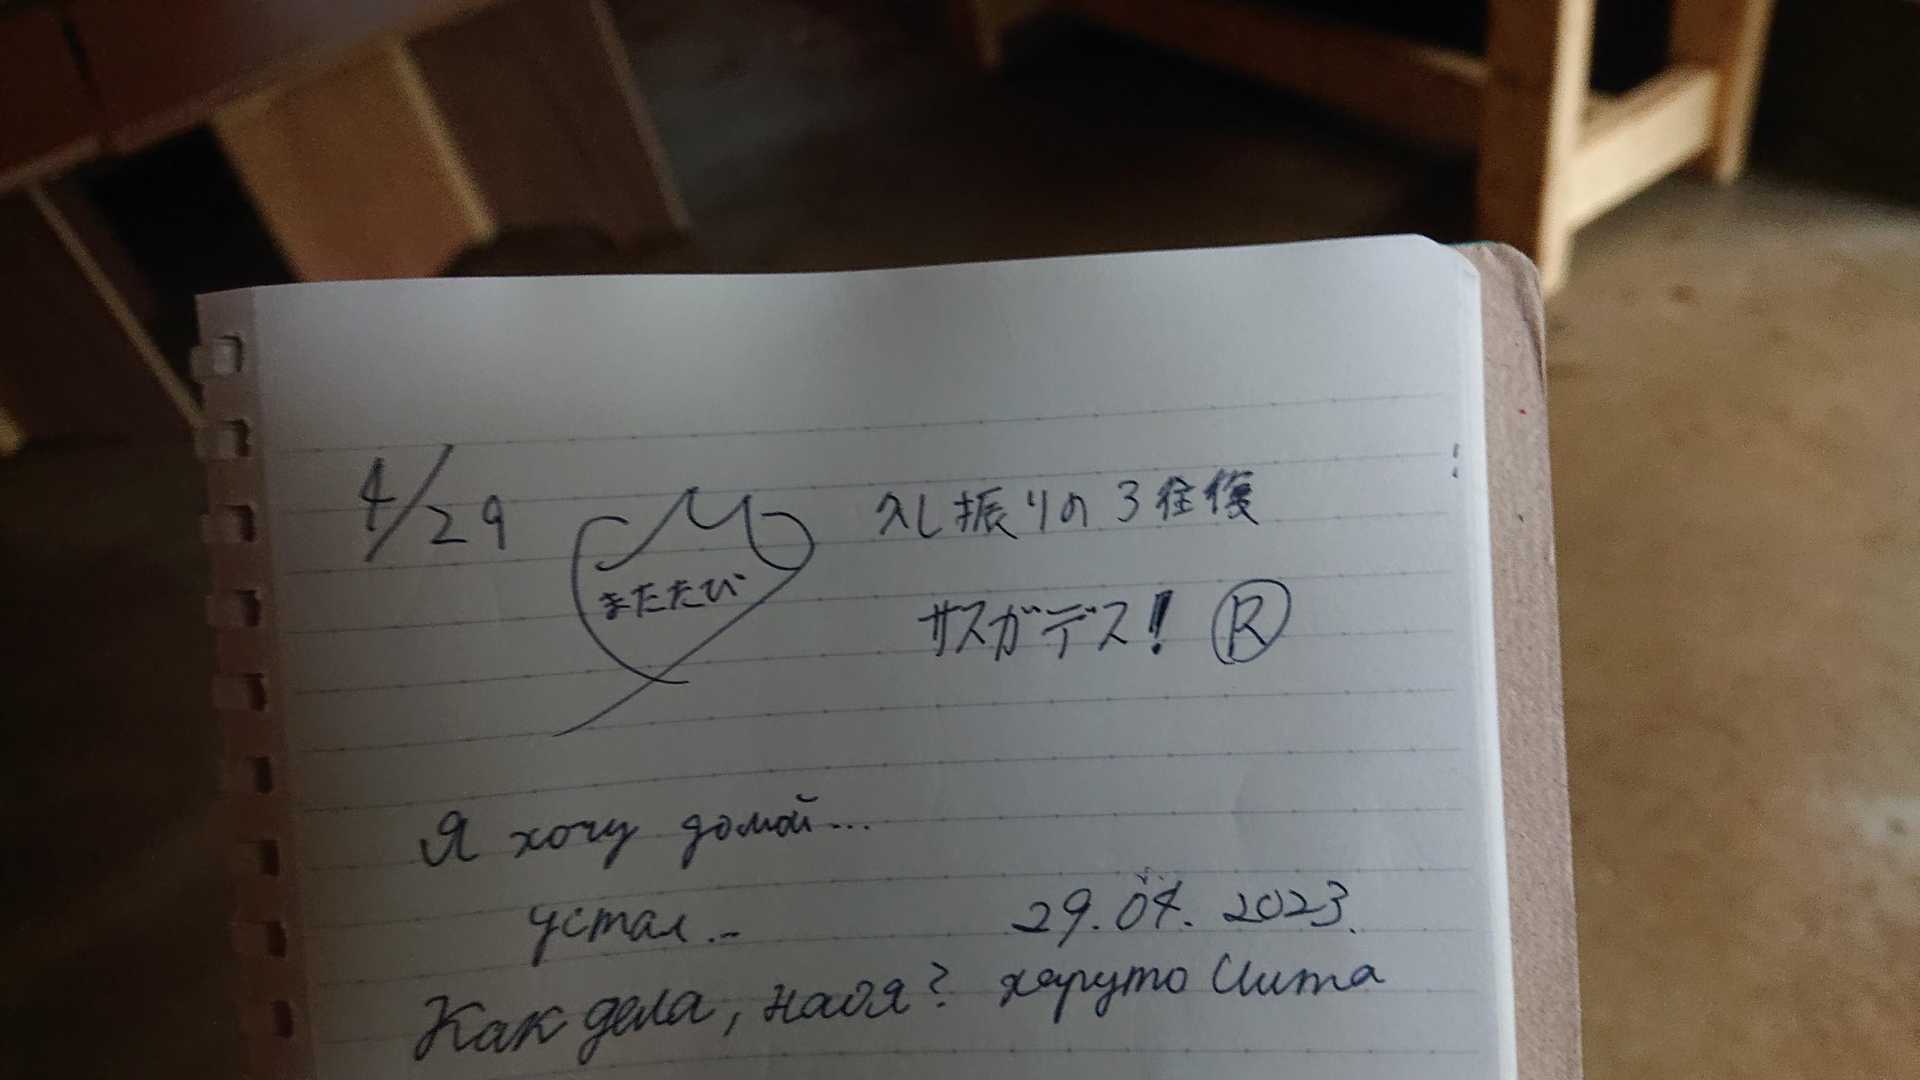 4/29 久し振りの3往復
またたび サスガデス! Ⓡ
Я хочу домой...
устал... 29.04.2023.
Как дела, наоя? харуто Иита